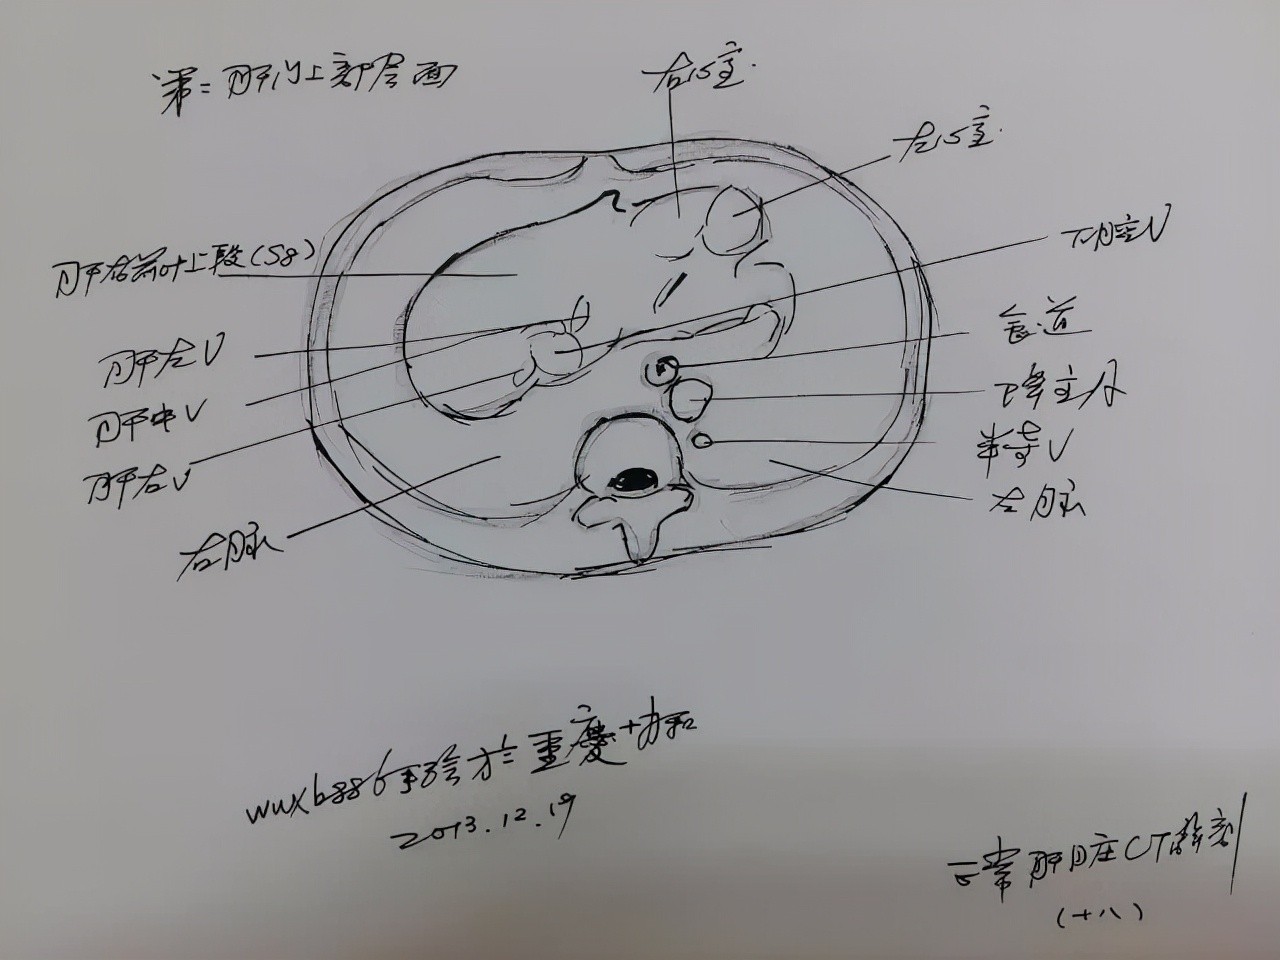 第二肝门上部层面
右心室
左心室
肝右前叶上段(S8)
下腔V
肝左V
食道
肝中V
降主A
肝右V
半奇V
左肺
右肺
wwxb886手绘于重慶协和
2013.12.19
正常肝脏CT解剖
(十八)